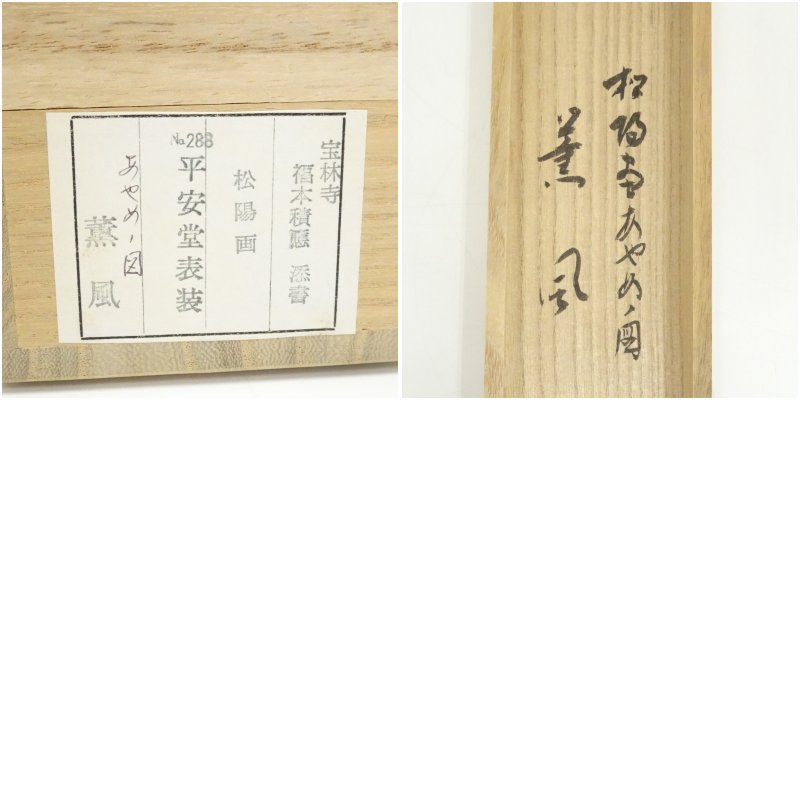 宝林寺
福本積應 添書
松陽画
No.288
平安堂表装
あやめノ図
薫風
松陽画あやめノ図
薫風